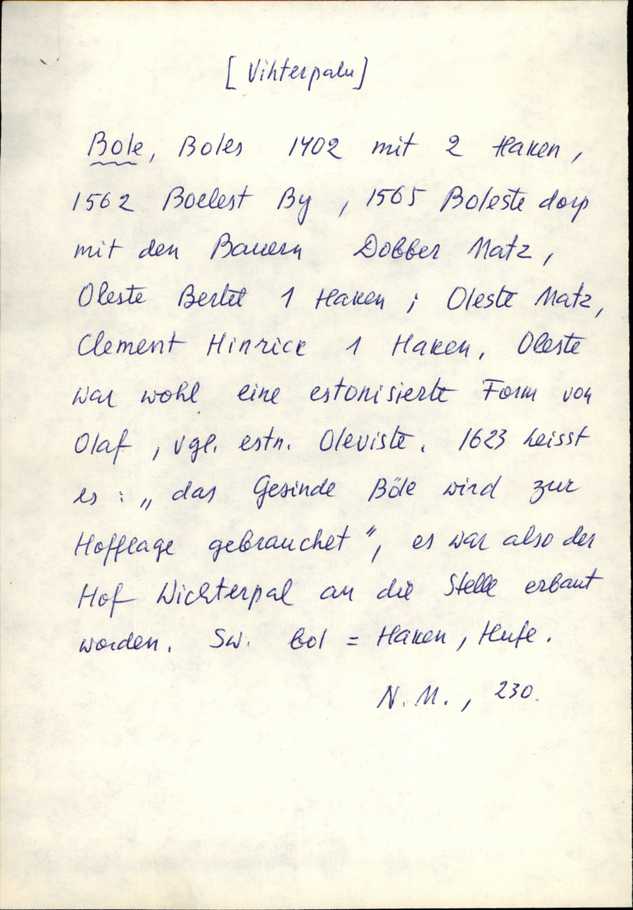 [Vihterpalu]
Bole, Boles 1402 mit 2 Haken,
1562 Boelest By, 1565 Boleste dorp
mit den Bauern Dobber Matz,
Oleste Bertel 1 Haken; Oleste Matz,
Clement Hinrick 1 Haken. Oleste
war wohl eine estonisierte Form von
Olaf, vgl. estn. Oleviste. 1623 heisst
es: „das Gesinde Böle wird zur
Hofflage gebrauchet", es war also der
Hof Wichterpal an die Stelle erbaut
worden. Sw. bol = Haken, Hufe.
N.M., 230.